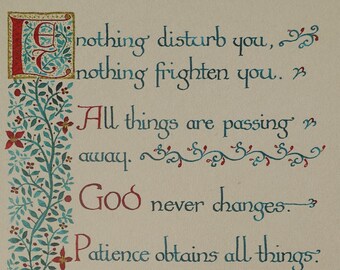 Let nothing disturb you,
nothing frighten you.
All things are passing
away.
God never changes.
Patience obtains all things.